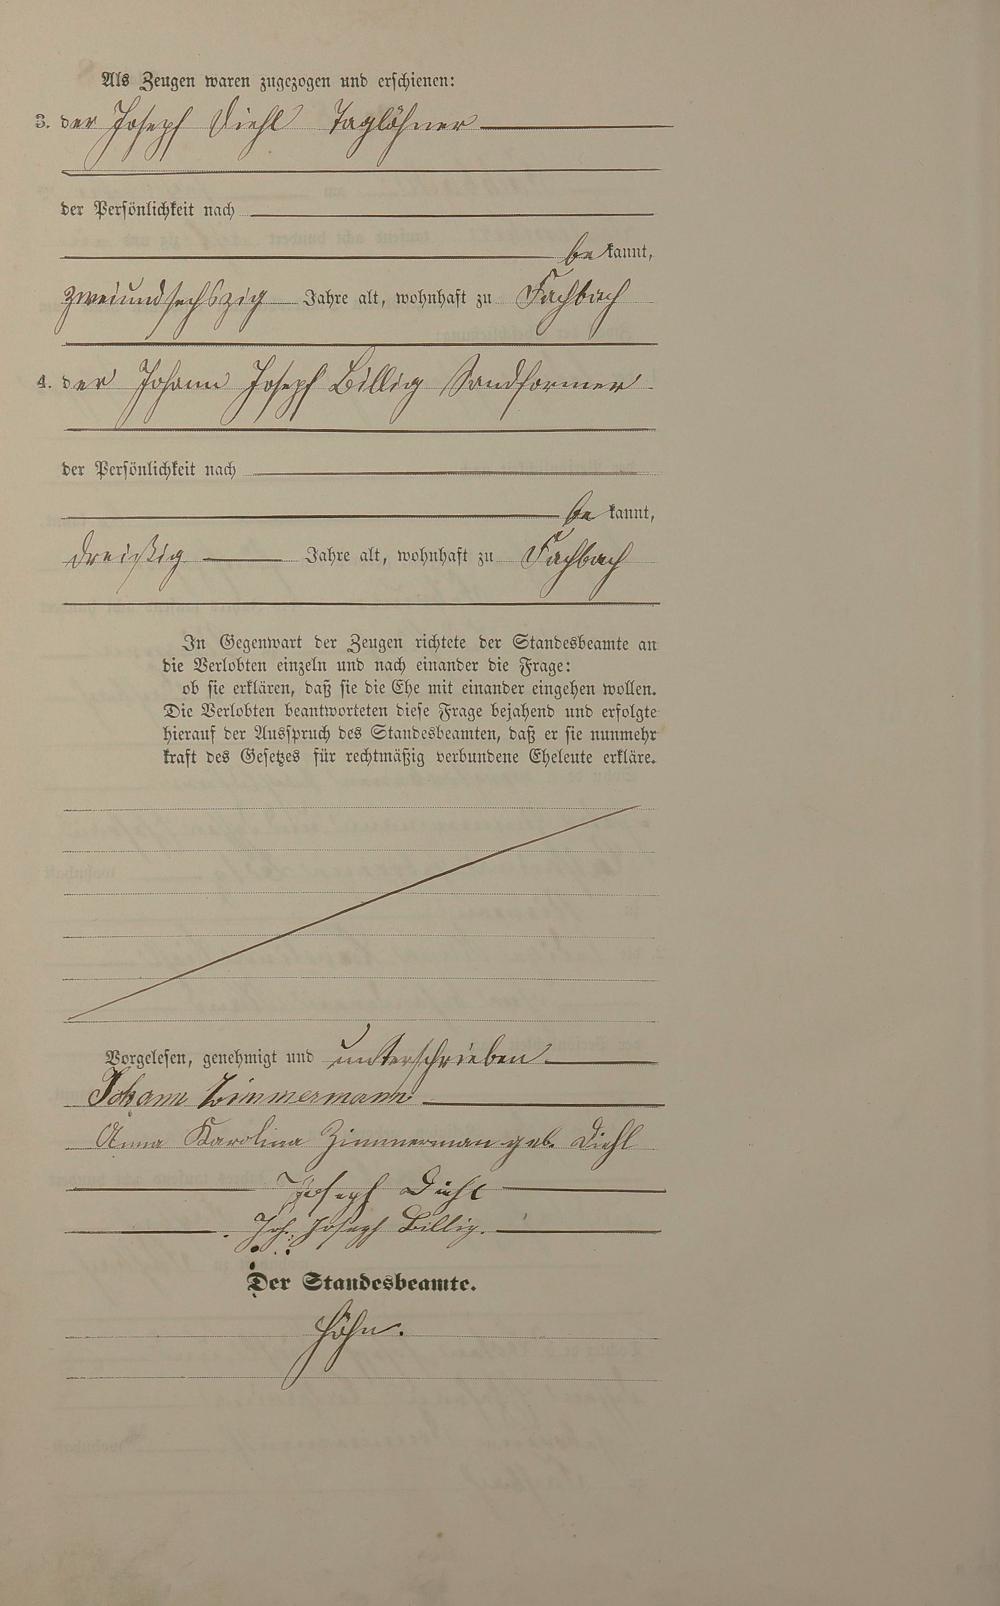 Als Zeugen waren zugezogen und erschienen:
3. der Joseph Diehl Taglöhner
der Persönlichkeit nach
be kannt,
zweiundsechszig Jahre alt, wohnhaft zu Fachbach
4. der Johann Joseph Billig Sandformer
der Persönlichkeit nach
be kannt,
dreißig Jahre alt, wohnhaft zu Fachbach
In Gegenwart der Zeugen richtete der Standesbeamte an
die Verlobten einzeln und nach einander die Frage:
ob sie erklären, daß sie die Ehe mit einander eingehen wollen.
Die Verlobten beantworteten diese Frage bejahend und erfolgte
hierauf der Ausspruch des Standesbeamten, daß er sie nunmehr
kraft des Gesetzes für rechtmäßig verbundene Eheleute erkläre.
Vorgelesen, genehmigt und unterschrieben
Johann Zimmermann
Anna Karolina Zimmerman geb. Diehl
Joseph Diehl
Joh. Joseph Billig.
Der Standesbeamte.
Höhn.